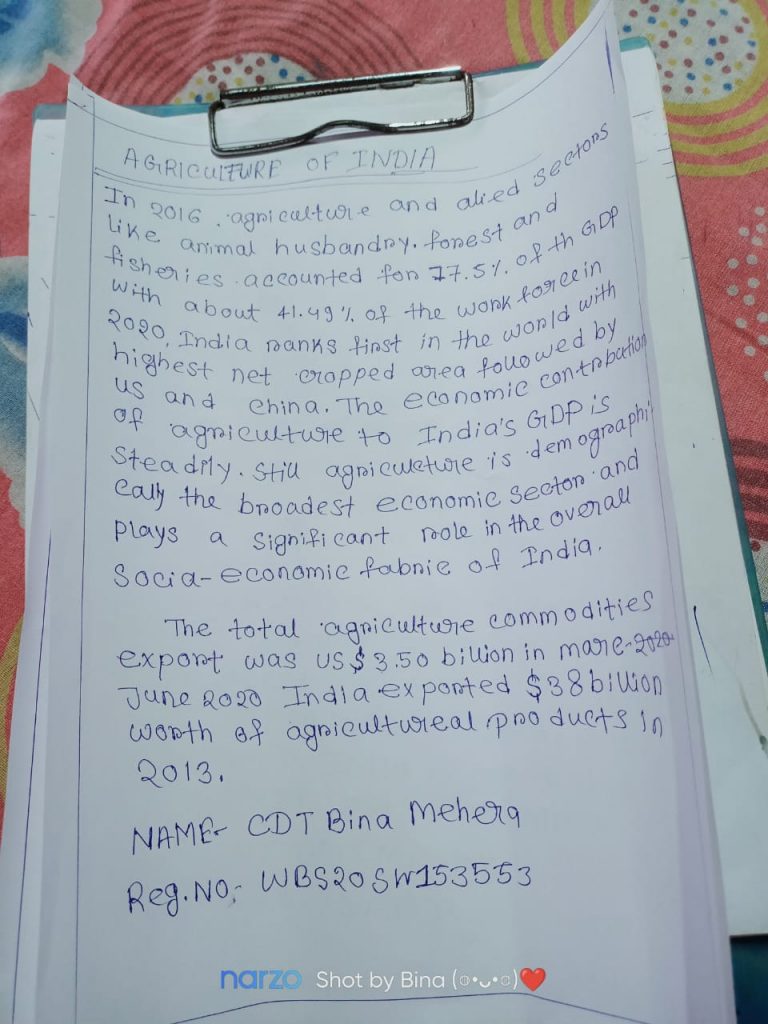 AGRICULTURE OF INDIA
In 2016, agriculture and alied sectors
like animal husbandry. forest and
fisheries accounted for 17.5% of th GDP
with about 41.49% of the work force in
2020, India ranks first in the world with
highest net cropped area followed by
US and china. The economic contribation
of agriculture to India's GDP is
steadily. Still agriculeture is demographi
cally the broadest economic sector and
plays a significant role in the overall
Socia-economic fabric of India.
The total agriculture commodities
export was US$3.50 billion in marc-2020-
June 2020 India exported $38 billion
worth of agricultureal products in
2013.
NAME- CDT Bina Mehera
Reg.NO:- WBS20SW153553
narzo Shot by Bina (๏•ᴗ•๏)❤️